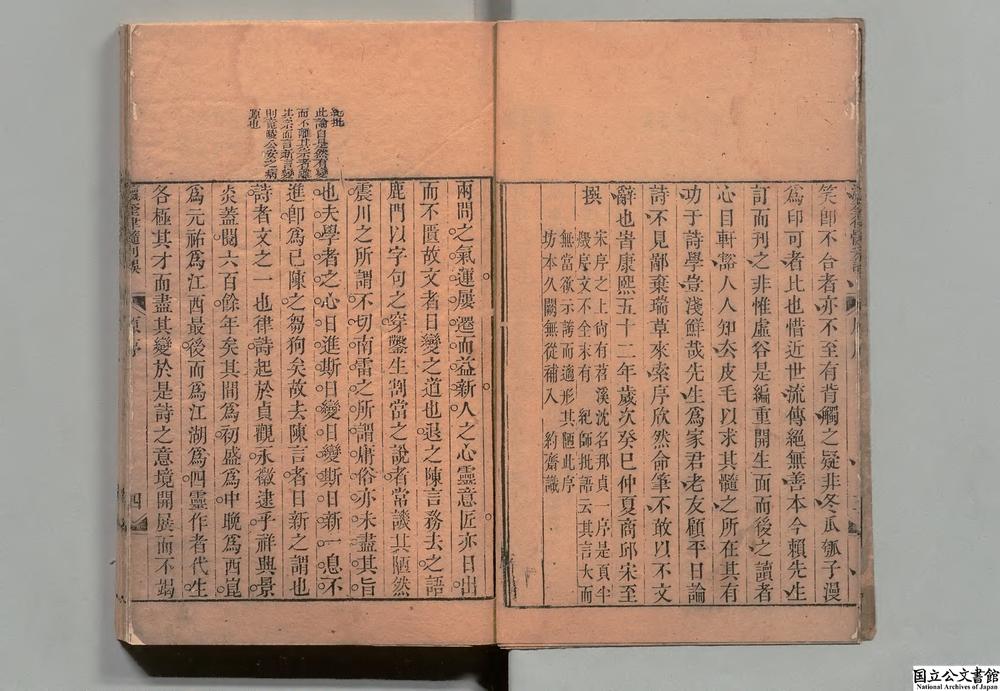 笑卽不台者亦不至有背觸之疑非冬瓜瓠子漫
爲印可者比也惜近世流傳絕無善本今賴先生
訂而刊之非惟虛谷是編重開生面而後之讀者
心目軒豁人人知去皮毛以求其髓之所在其有
功于詩學豈淺鮮哉先生爲家君老友顧平日論
詩不見鄙棄瑞草來索序欣然命筆不敢以不文
辭也旹康熙五十二年歲次癸巳仲夏商邱宋至
撰
宋序之上尙有苕溪沈名邢貞一序是頁半
幾序文不全末有 紀師批語云其言大而
無當欲示譏而適形其陋此序
坊本久闕無從補入 約齋識
紀批
此論自是然有變
而不離其宗者離
其宗而言新言變
則竟陵公安之病
源也
兩閒之氣運屢遷而益新人之心靈意匠亦日出
而不匱故文者日變之道也退之陳言務去之語
鹿門以字句之穿鑿生割當之說者常譏其陋然
震川之所謂不切南雷之所謂庸俗亦未盡其旨
也夫學者之心日進斯日變日變斯日新一息不
進卽爲已陳之芻狗矣故去陳言者日新之謂也
詩者文之一也律詩起於貞觀永徽逮乎祥興景
炎蓋閱六百餘年矣其間爲初盛爲中晚爲西崑
爲元祐爲江西最後而爲江湖爲四靈作者代生
各極其才而盡其變於是詩之意境開展而不竭
原序
四
国立公文書館
National Archives of Japan